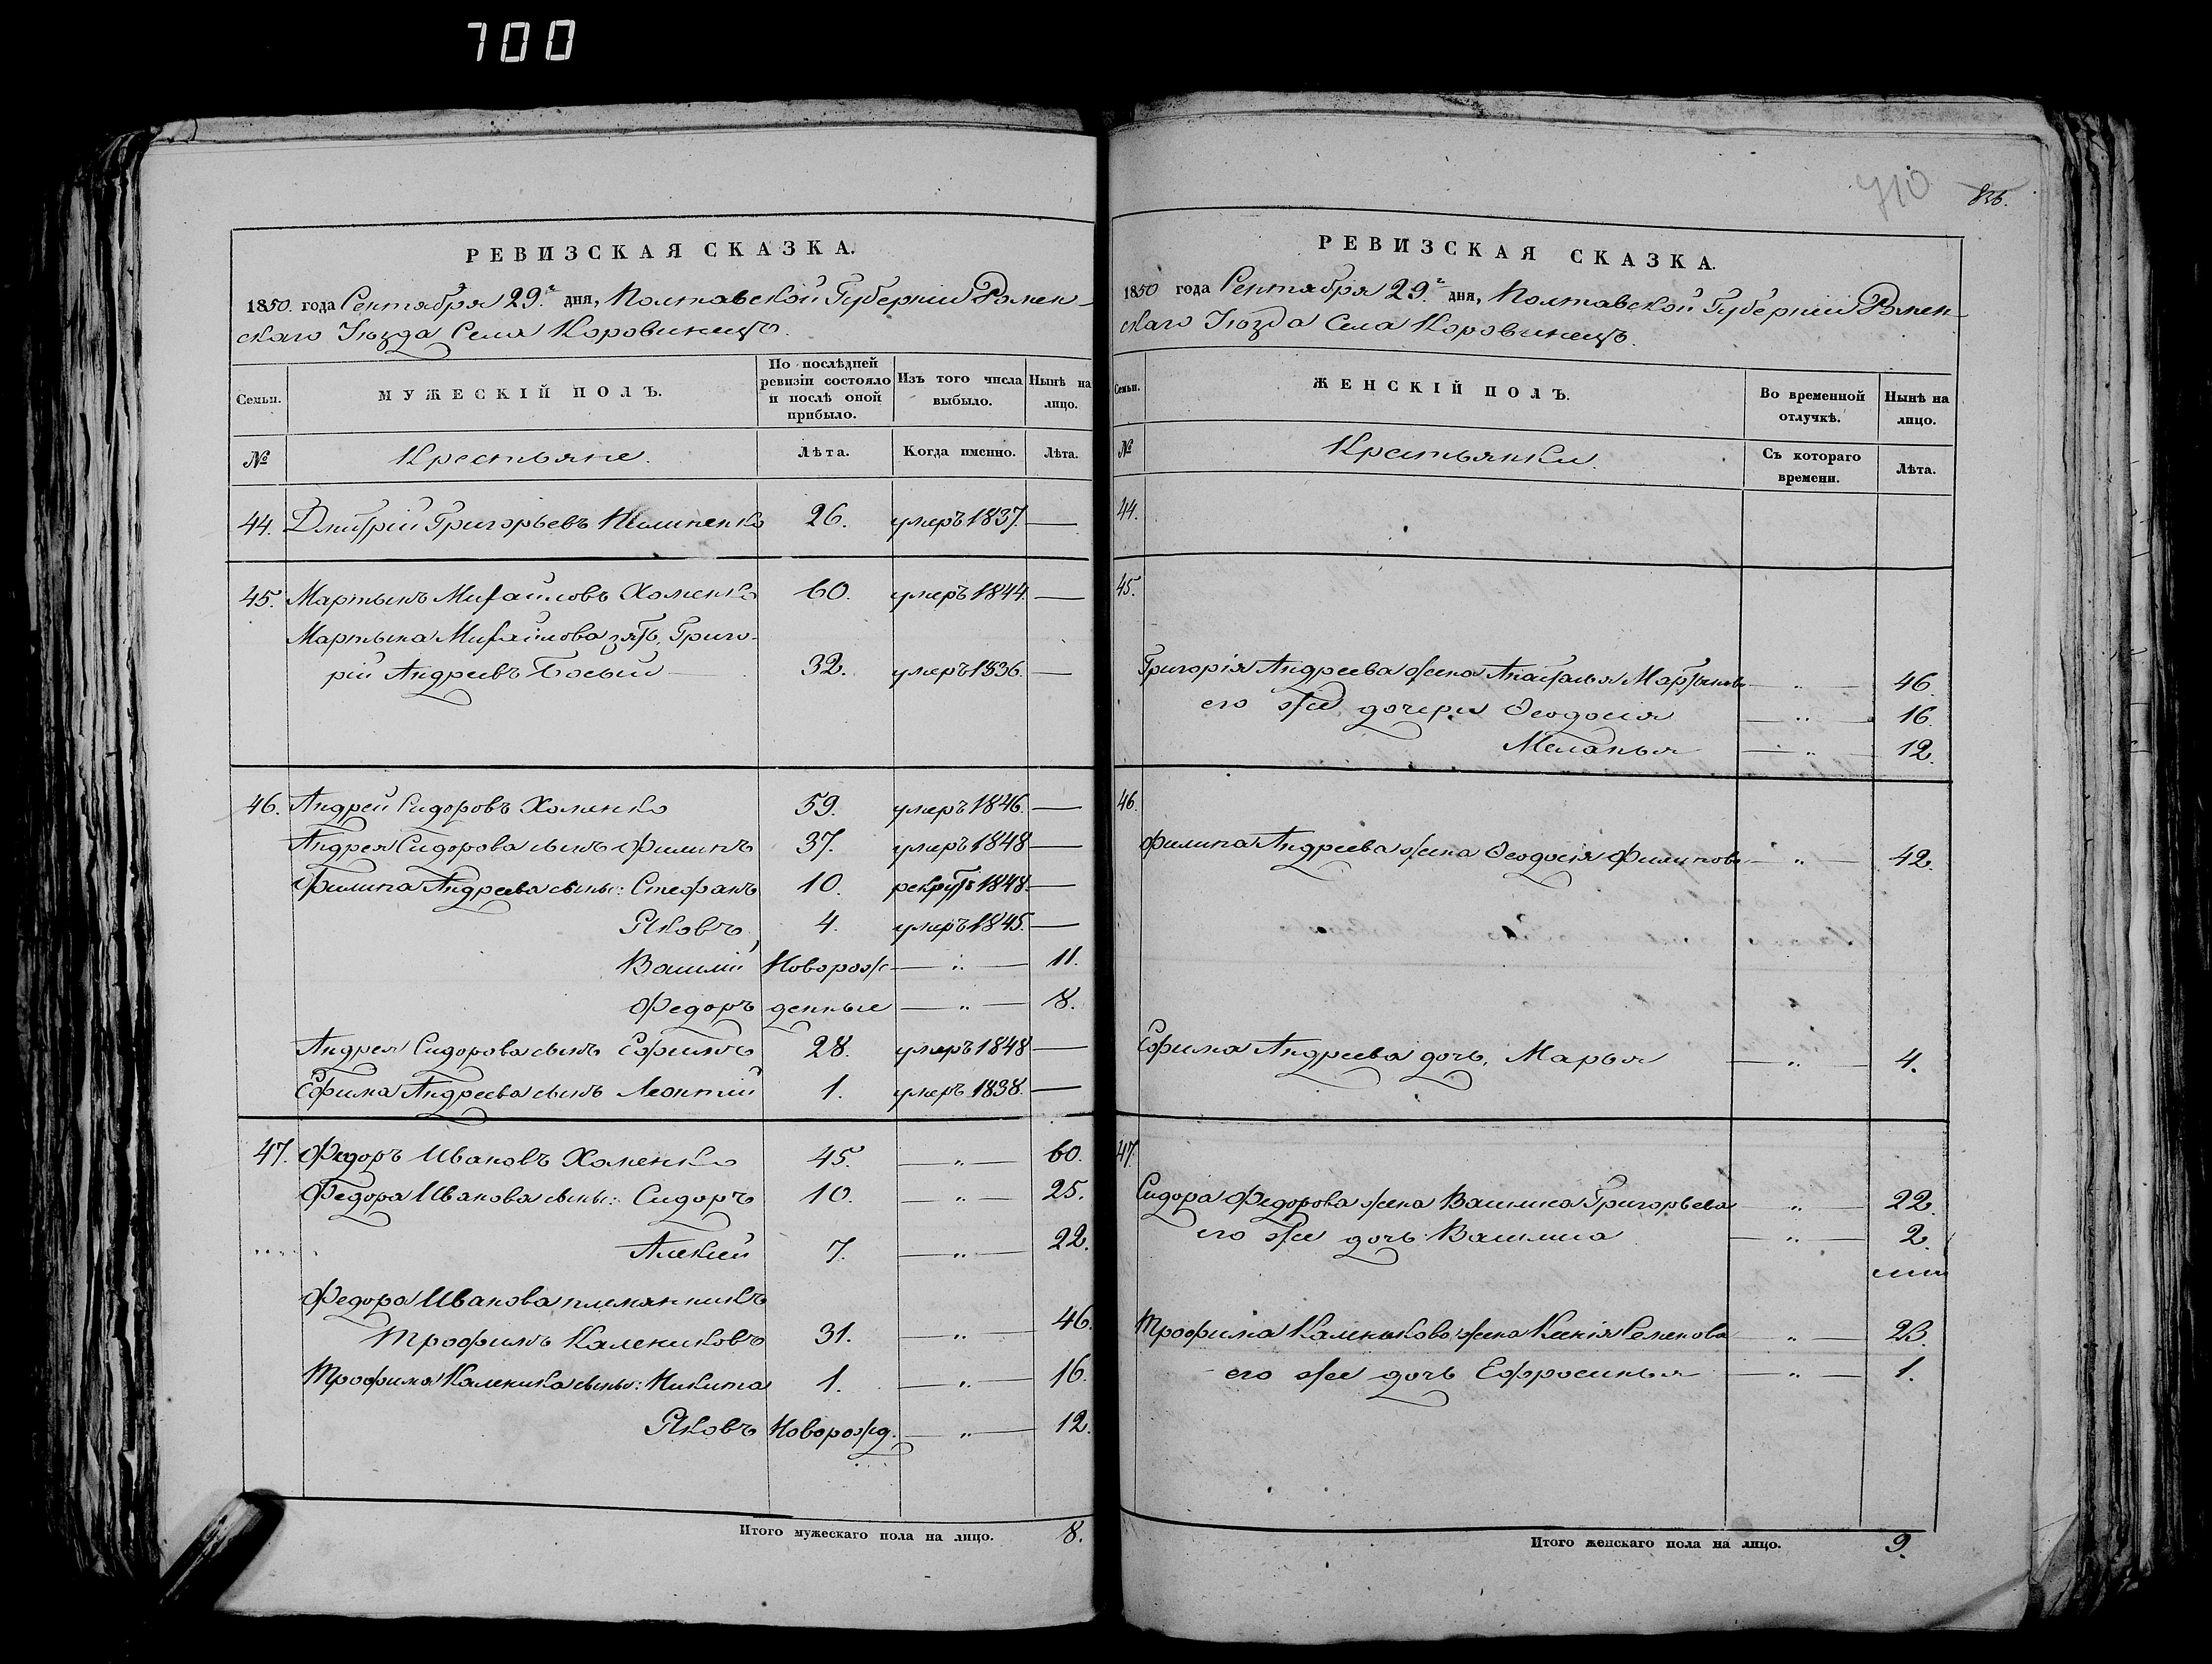 700
710
826.
РЕВИЗСКАЯ СКАЗКА.
1850. года Сентября 29.г дня, Полтавской Губерніи Ромен-
скаго Уѣзда Села Коровинецъ.
Семьи.
МУЖЕСКІЙ ПОЛЪ.
По послѣдней ревизіи состояло и послѣ оной прибыло.
Изъ того числа выбыло.
Нынѣ на лицо.
№
Крестьяне.
Лѣта.
Когда именно.
Лѣта.
44. Дмитрій Григорьевъ 26. умеръ 1837. —
45. Мартынъ Михайловъ Хоменко 60. умеръ 1844. —
Мартына Михайлова зять Григо-
рій Андреевъ Босый — 32. умеръ 1836. —
46. Андрей Сидоровъ Хоменко 59. умеръ 1846. —
Андрея Сидорова сынъ Филипъ 37. умеръ 1848 —
Филипа Андреева сыны: Стефанъ 10. рекрутъ 1848. —
Яковъ 4. умеръ 1845. —
Василій Новорож- — „ — 11.
Федоръ денные — „ — 8.
Андрея Сидорова сынъ Ефимъ 28. умеръ 1848 —
Ефима Андреева сынъ Леонтій 1. умеръ 1838. —
47. Федоръ Ивановъ Хоменко 45. — „ — 60.
Федора Иванова сыны: Сидоръ 10. — „ — 25.
Алексій 7. — „ — 22.
Федора Иванова племянникъ
Трофимъ Калениковъ 31. — „ — 46.
Трофима Каленика сыны: Никита 1. — „ — 16.
ЯковъНоворожд. — „ — 12.
Итого мужескаго пола на лицо. 8.
РЕВИЗСКАЯ СКАЗКА.
1850 года Сентября 29.г дня, Полтавской Губерніи Ромен-
скаго Уѣзда Села Коровинецъ.
Семьи.
ЖЕНСКІЙ ПОЛЪ.
Во временной отлучкѣ.
Нынѣ на лицо.
№
Крестьянки.
Съ котораго времени.
Лѣта.
44.
45.
Григорія Андреева жена Наталья Мартынова — „ — 46.
его же дочери Ѳеодосія — „ — 16.
Меланья — „ — 12.
46.
Филипа Андреева жена Ѳеодосія Филипова — „ — 42.
Ефима Андреева дочь, Марья — „ — 4.
47.
Сидора Федорова жена Василиса Григорьева — „ — 22.
его же дочь Василиса — „ — 2.
Трофима Каленикова жена Ксенія Семенова — „ — 23.
его же дочь Ефросинья — „ — 1.
Итого женскаго пола на лицо. 9.